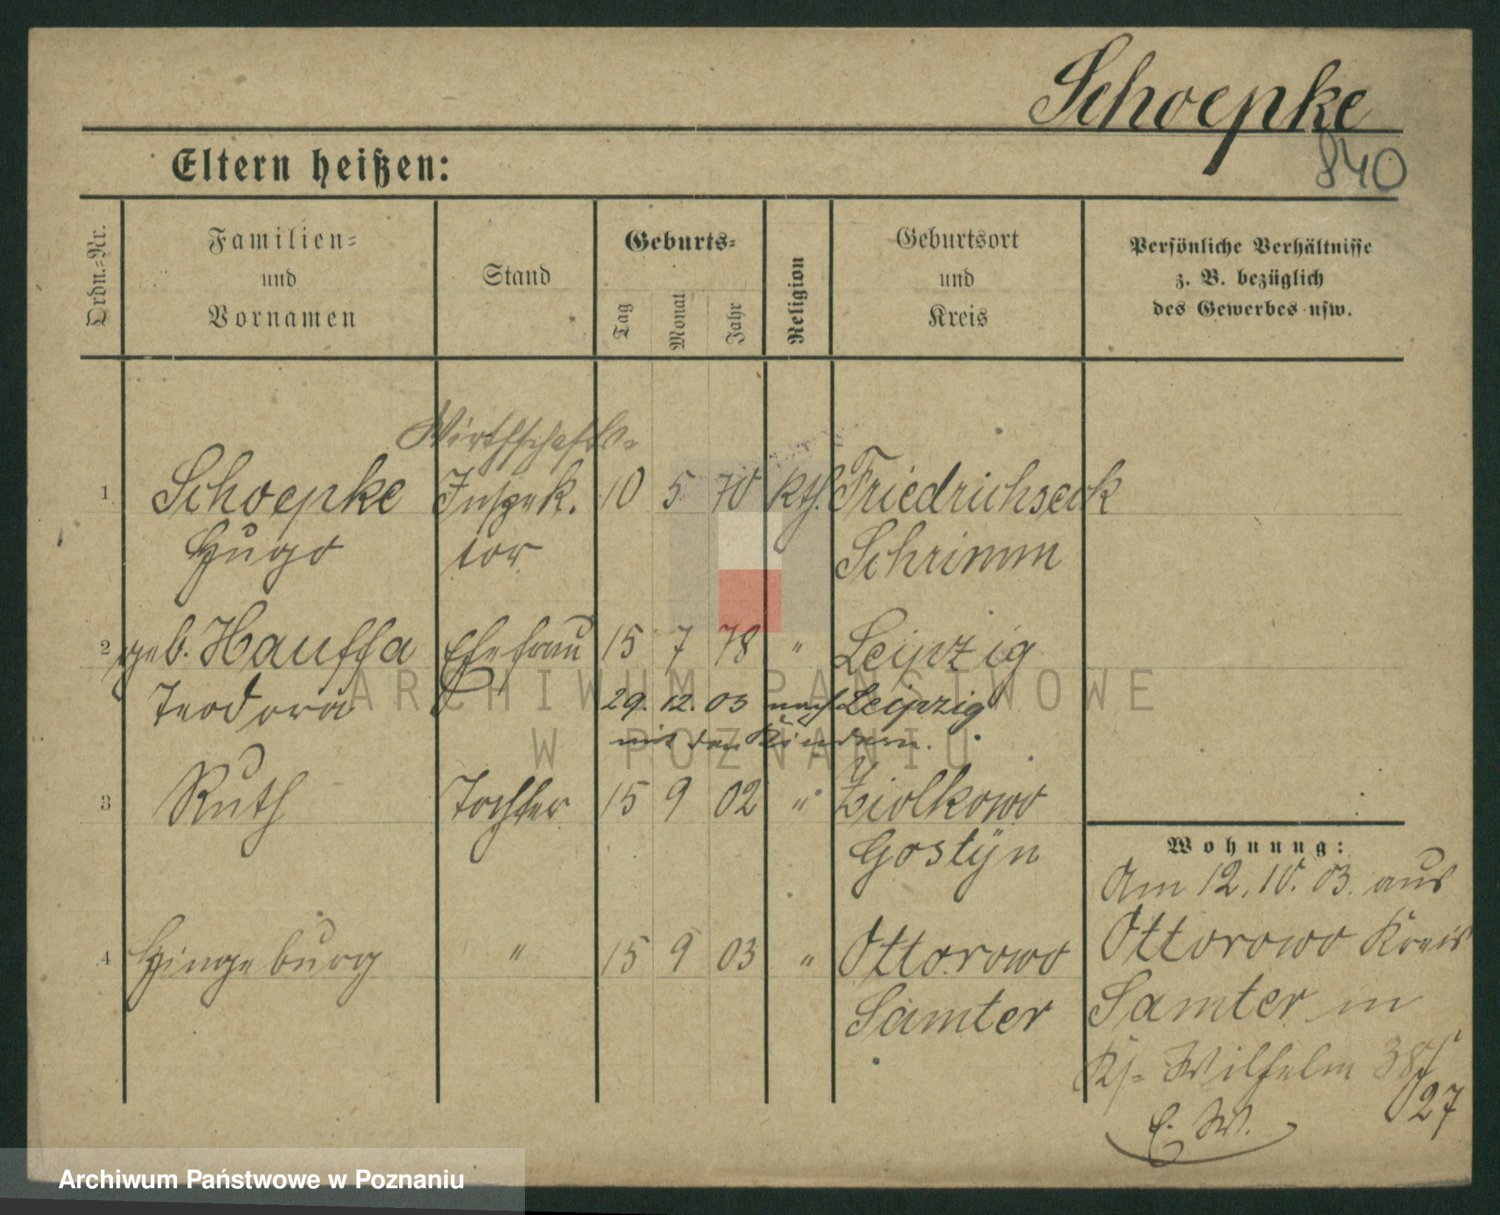 Schoepke
840
Eltern heißen:
Ordn.-Nr.
Familien-
und
Vornamen
Stand
Geburts-
Tag
Monat
Jahr
Religion
Geburtsort
und
Kreis
Persönliche Verhältnisse
z. B. bezüglich
des Gewerbes usw.
Wirthschafts-
1 Schoepke Inspek. 10 5 70 kth. Friedrichseck
Hugo tor Schrimm
2 geb. Hauffa Ehefrau 15 7 78 " Leipzig
Teodora 29. 12. 03 nach Leipzig
mit den Kindern.
3 Ruth Tochter 15 9 02 " Ziolkowo
Gostÿn
4 Hingeburg " 15 9 03 " Ottorowo
Samter
Wohnung:
Am 12. 10. 03. aus
Ottorowo Kreis
Samter in
Wilhelm 38
27
E. W.
ARCHIWUM PAŃSTWOWE
W POZNANIU
Archiwum Państwowe w Poznaniu